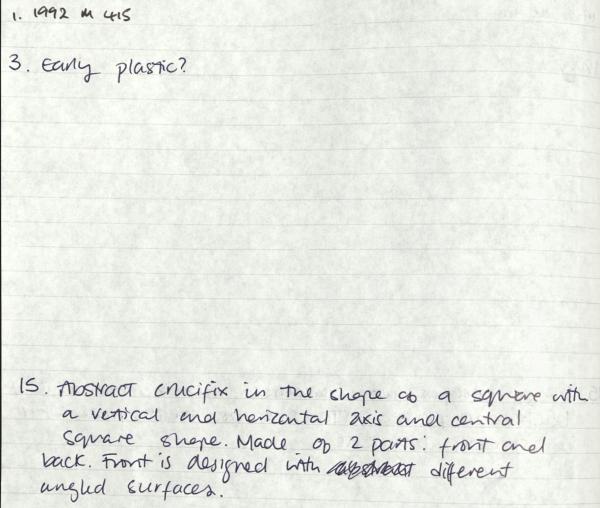 1. 1992 M 415
3. Early plastic?
15. Abstract crucifix in the shape of a square with
a vertical and horizontal axis and central
square shape. Made of 2 parts: front and
back. Front is designed with different
angled surfaces.